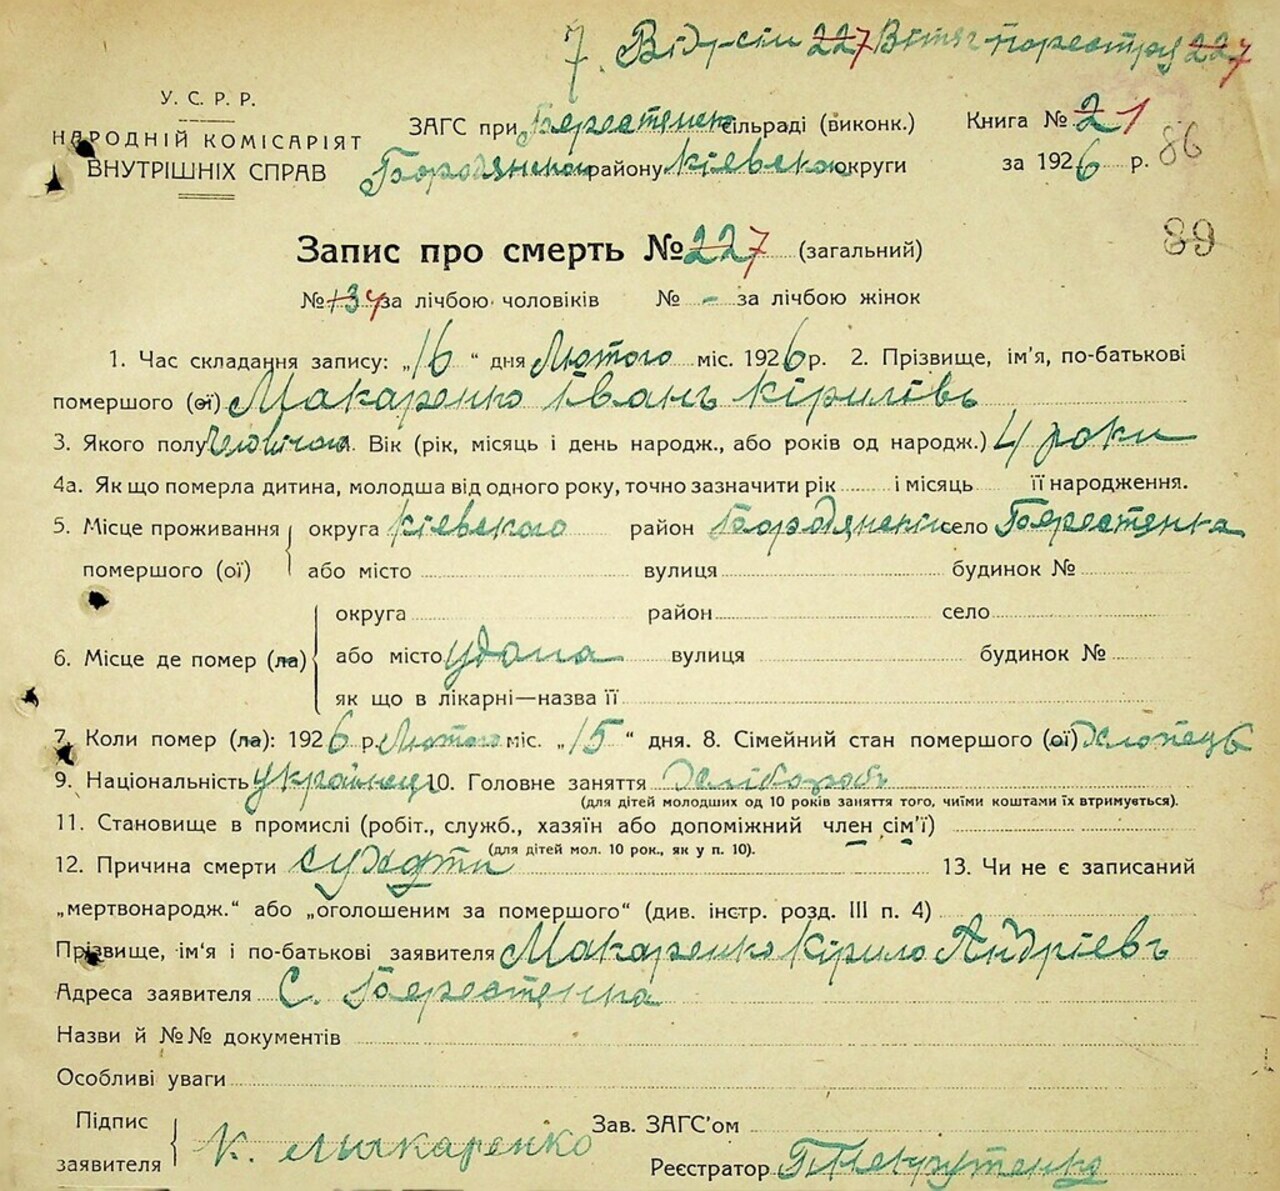 7. Відсіч 227 Витяг пореєстру 227
У. С. Р. Р.
НАРОДНІЙ КОМІСАРІЯТ
ВНУТРІШНІХ СПРАВ
ЗАГС при Берестянск сільраді (виконк.)
Бородянском району Кіевском округи
Книга № 21
за 1926 р.
86
89
Запис про смерть № 227 (загальний)
№ 134 за лічбою чоловіків № - за лічбою жінок
1. Час складання запису: „16“ дня Лютого міс. 1926 р. 2. Прізвище, ім’я, по-батькові
помершого (ої) Макаренко Іванъ Кіриловъ
3. Якого полу Вік (рік, місяць і день народж., або років од народж.) 4 роки
4а. Як що померла дитина, молодша від одного року, точно зазначити рік і місяць її народження.
5. Місце проживання помершого (ої) округа Кіевского район село Берестянка
або місто вулиця будинок №
6. Місце де помер (ла) округа район село
або місто удома вулиця будинок №
як що в лікарні—назва її
7. Коли помер (ла): 1926 р. Лютого міс. „15“ дня. 8. Сімейний стан помершого (ої) Хлопець
9. Національність українец 10. Головне заняття Хліборобъ
(для дітей молодших од 10 років заняття того, чиїми коштами їх втримується).
11. Становище в промислі (робіт., служб., хазяїн або допоміжний член сім’ї)
(для дітей мол. 10 рок., як у п. 10).
12. Причина смерти сухоти 13. Чи не є записаний
„мертвонародж.“ або „оголошеним за помершого“ (див. інстр. розд. III п. 4)
Прізвище, ім‘я і по-батькові заявителя Макаренко Кірило Андріевъ
Адреса заявителя С. Берестянка
Назви й №№ документів
Особливі уваги
Підпис заявителя К. Макаренко
Зав. ЗАГС’ом
Реєстратор